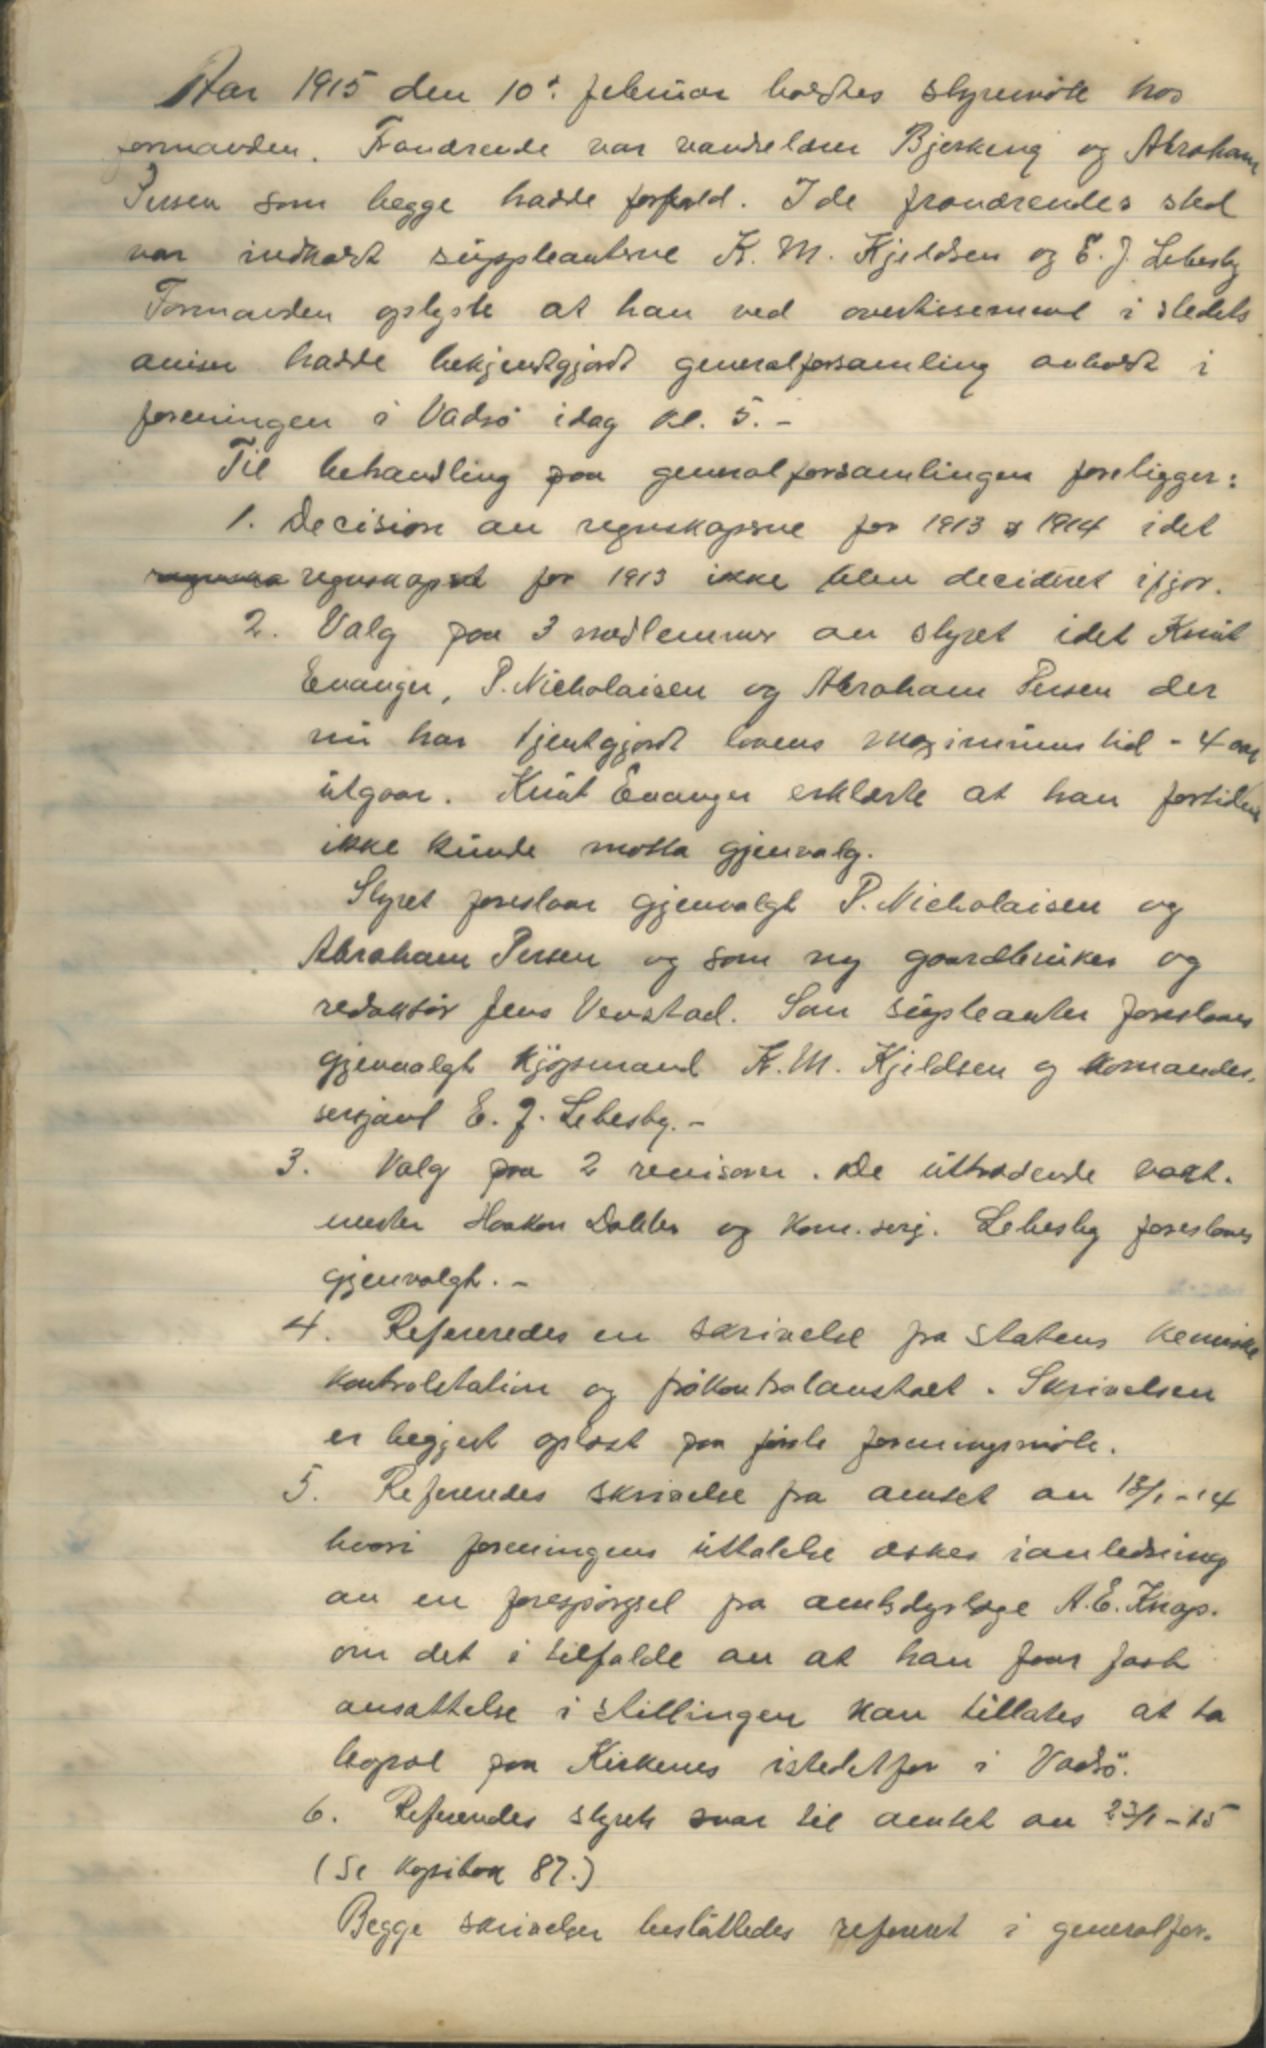 Aar 1915 den 10d. februar holdtes styremöte hos
formanden. Fraværende var vandrelærer Bjerkeng og Abraham
Persen som begge hadde forfald. I de fraværendes sted
var indkaldt suppleanterne K. M. Kjeldsen og E. J. Lebesby
Formanden oplyste at han ved avertissement i stedets
aviser hadde bekjendtgjordt generalforsamling avholdt i
foreningen i Vadsö idag kl. 5. -
Til behandling paa generalforsamlingen foreligger:
1. Decision av regnskaperne for 1913 & 1914 idet
regnskapet for 1913 ikke blev decideret ifjor.
2. Valg paa 3 medlemmer av styret idet Knut
Evanger, P. Nicholaisen og Abraham Persen der
nu har tjentgjordt lovens maximums tid - 4 aar
utgaar. Knut Evanger erklærte at han fortiden
ikke kunde motta gjenvalg.
Styret foreslaar gjenvalgt P. Nicholaisen og
Abraham Persen og som ny gaardbruker og
redaktör Jens Venstad. Som supleanter foreslaaes
gjenvalgt kjöpmand K. M. Kjeldsen og komander-
sersjant E. J. Lebesby. -
3. Valg paa 2 revisorer. De uttrædende vakt-
mester Haakon Dabler og kom.serj. Lebesby foreslaaes
gjenvalgt. -
4. Refereredes en skrivelse fra Statens kemiske
kontrolstation og frökontrolanstalt. Skrivelsen
er begjert oplæst paa förste foreningsmöte.
5. Refereredes skrivelse fra amtet av 18/1 - 14
hvori foreningens uttalelse æskes ianledning
av en forespörgsel fra amtsdyrlæge A. E. Knap.
om det i tilfælde av at han faar fast
ansættelse i stillingen kan tillates at ta
bopæl paa Kirkenes istedetfor i Vadsö.
6. Refereredes styrets svar til amtet av 23/1 - 15
(Se kopibok 87.)
Begge skrivelser besluttedes referert i generalfor-